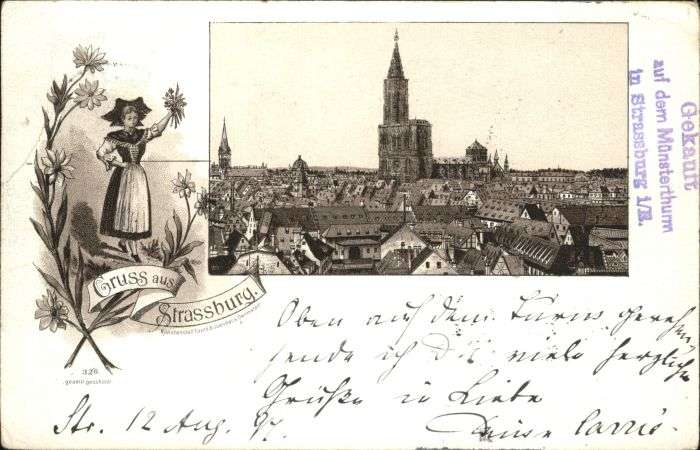 Gruss aus
Strassburg.
326
gesetzl. geschützt
Gekauft
auf dem Münsterthurm
in Strassburg i/E.
Oben auf dem Turm
sende ich Dir viele herzliche
Grüße in Liebe
Str. 12 Aug. 97.